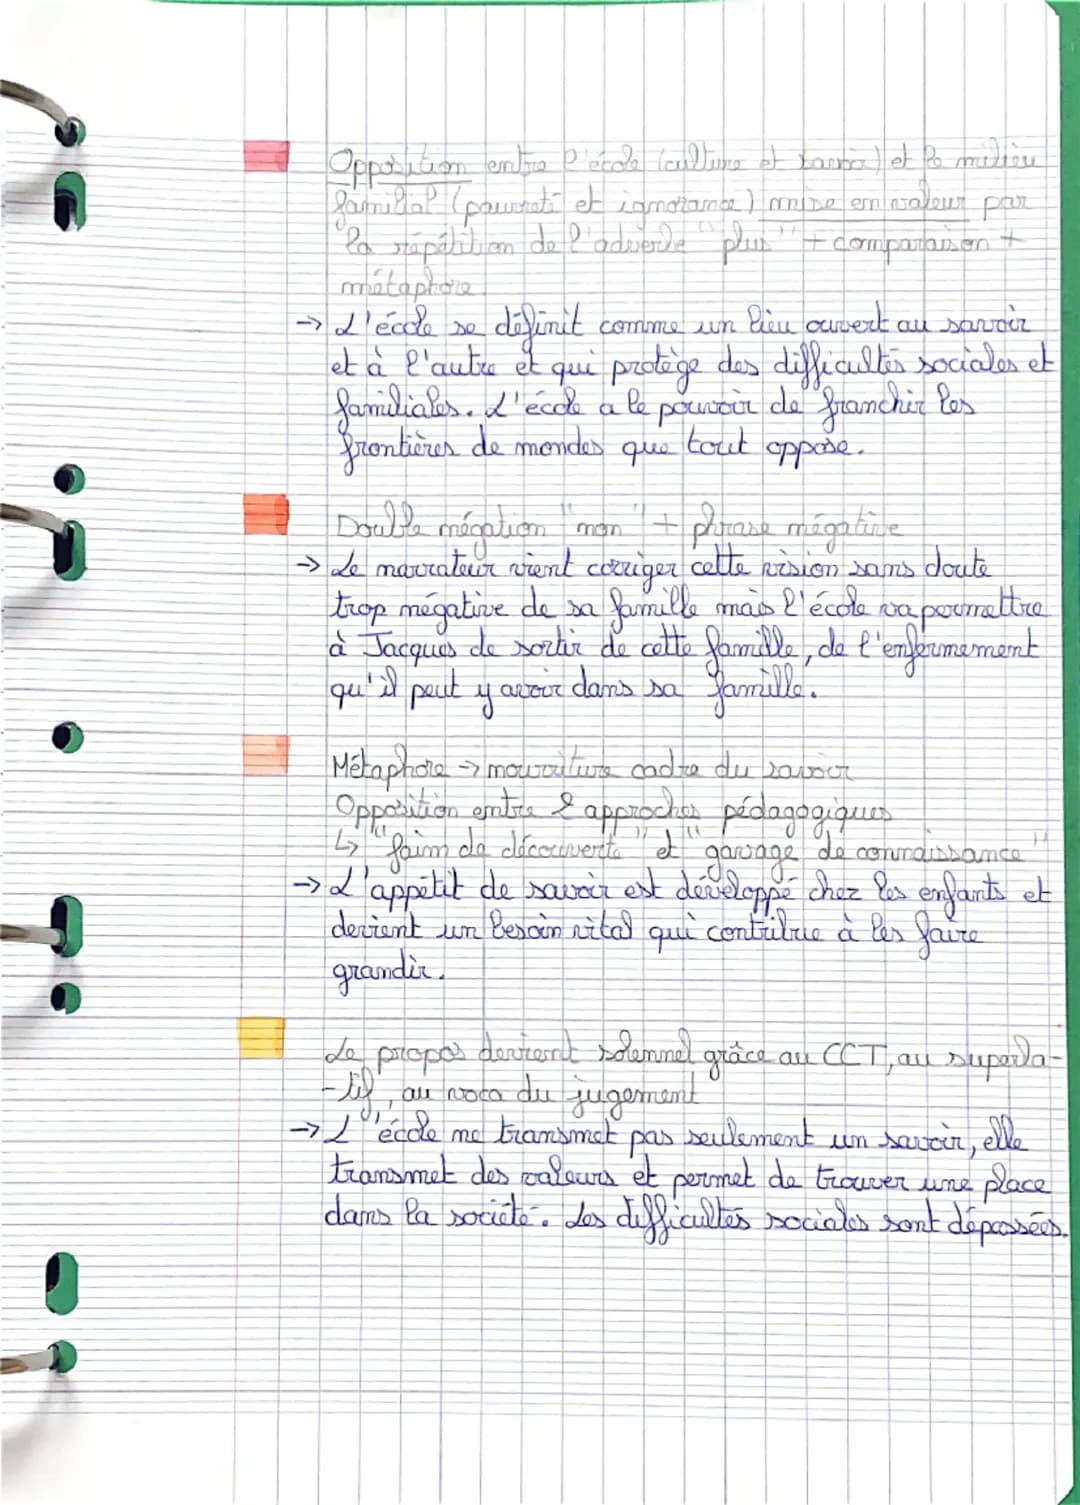 Opposition entre l'école (culture et savoir) et le milieu
familial (pauvreté et ignorance) mise en valeur par
la répétition de l'adverbe "plus" + comparaison +
métaphore
→ L'école se définit comme un lieu ouvert au savoir
et à l'autre et qui protège des difficultés sociales et
familiales. L'école a le pouvoir de franchir les
frontières de mondes que tout oppose.
Double négation "non" + phrase négative
→ Le narrateur vient corriger cette vision sans doute
trop négative de sa famille mais l'école va permettre
à Jacques de sortir de cette famille, de l'enfermement
qu'il peut y avoir dans sa famille.
Métaphore → nourriture cadre du savoir
Opposition entre 2 approches pédagogiques
↳ "faim de découverte" et "gavage de connaissance"
→ L'appétit de savoir est développé chez les enfants et
devient un besoin vital qui contribue à les faire
grandir.
Le propos devient solennel grâce au CCT, au superla-
-tif, au voca du jugement
→ L'école ne transmet pas seulement un savoir, elle
transmet des valeurs et permet de trouver une place
dans la société. Les difficultés sociales sont dépassées.